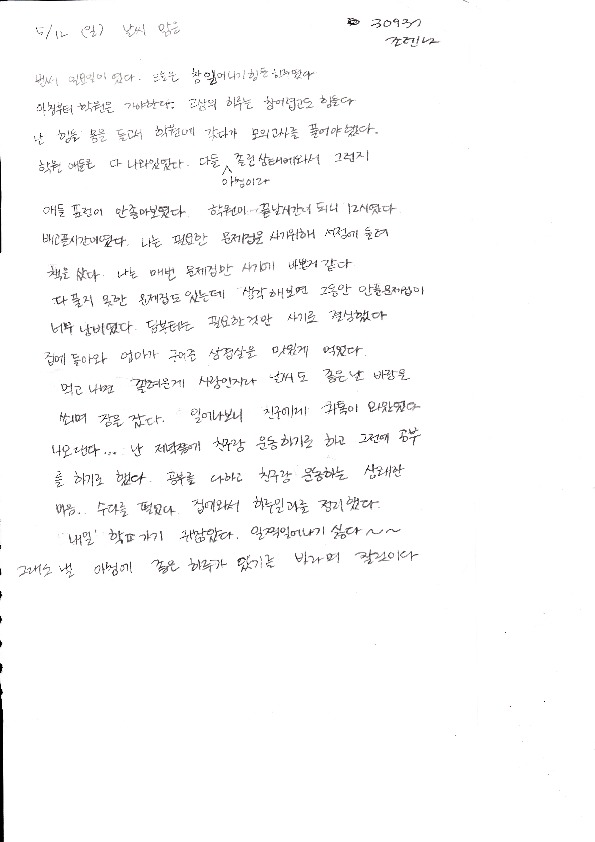 5/12 (일) 날씨 맑음
30937
조렌나
벌써 일요일이 였다. 오늘은 참 일어나기 힘든 하루였다
아침부터 학원을 가야한다: 고삼의 하루는 참어렵고도 힘들다
난 힘든 몸을 들고서 학원에 갔다가 모의고사를 풀어야 했다.
학원 애들은 다 나와있었다. 다들 졸린상태에와서 그런지
아침이라
애들 표정이 안좋아보였다. 학원이 끝날시간이 되니 12시였다
배고플시간이였다. 나는 필요한 문제집을 사기위해 서점에 들려
책을 샀다. 나는 매번 문제집만 사기에 바쁜거 같다
다 풀지 못한 문제집도 있는데 생각해보면 그동안 안푼문제집이
너무 낭비였다. 담부터는 필요한것만 사기로 결심했다
집에 돌아와 엄마가 구어준 삼겹살을 맛있게 먹었다.
먹고 나면 졸려운게 사람인지라 날씨도 좋은날 바람을
쐬며 잠을 잤다. 일어나보니 친구에게 카톡이 와있었다
나오란다... 난 저녁쯤에 친구랑 운동하기로 하고 그전에 공부
를 하기로 했다. 공부를 다하고 친구랑 운동하는 상쾌한
마음.. 수다를 떨었다 집에와서 하루일과를 정리했다.
내일 학교가기 귀찮았다. 일찍일어나기 싫다~~
그래도 낼 아침에 좋은 하루가 됐기를 바라며 잘것이다